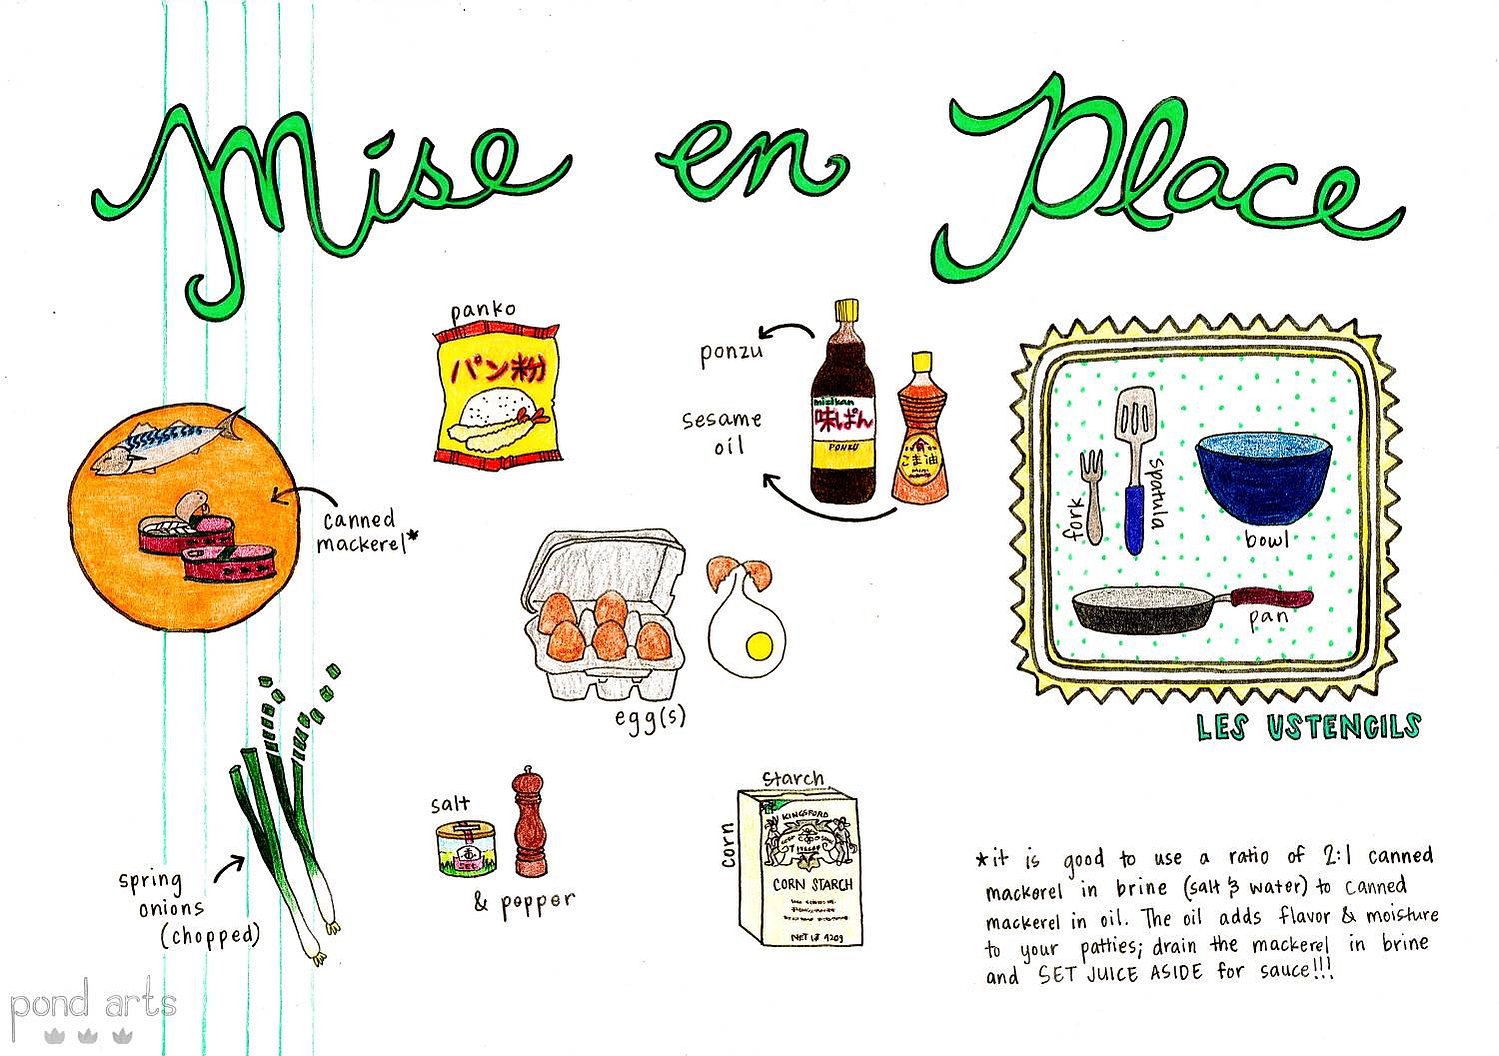 Mise en Place
panko
パン粉
ponzu
sesame
oil
mizkan
味ぽん
PONZU
ごま油
canned
mackerel*
egg(s)
fork
spatula
bowl
pan
LES USTENCILS
spring
onions
(chopped)
salt
& pepper
starch
corn
KINGSFORD
CORN STARCH
NET WT 420g
*it is good to use a ratio of 2:1 canned
mackerel in brine (salt & water) to canned
mackerel in oil. The oil adds flavor & moisture
to your patties; drain the mackerel in brine
and SET JUICE ASIDE for sauce!!!
pond arts